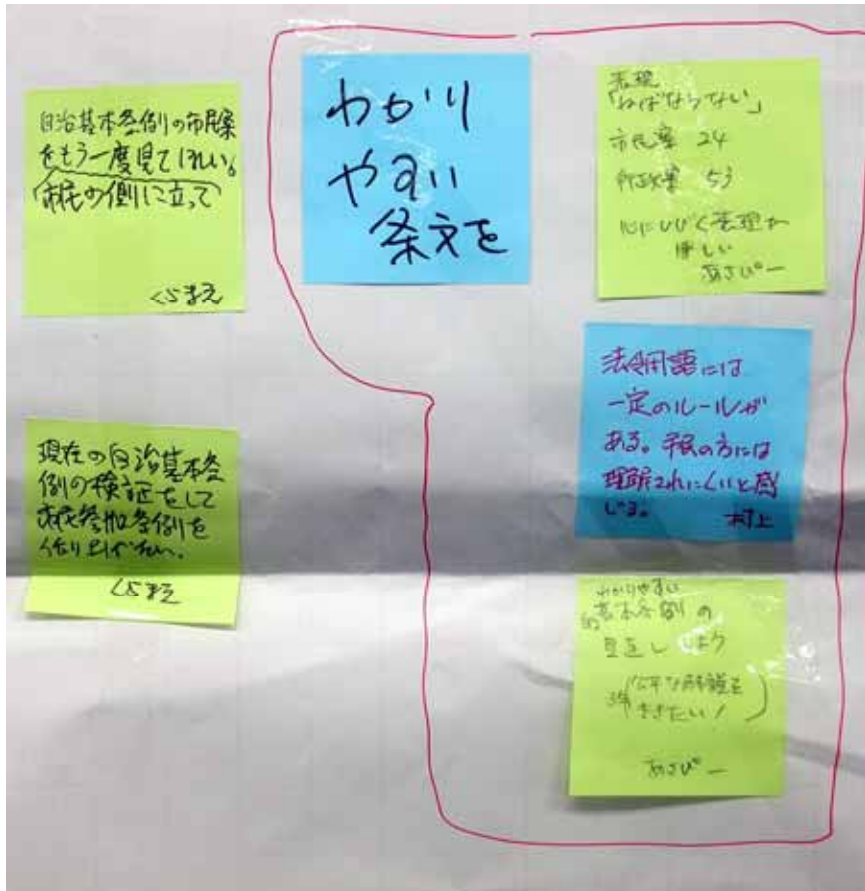 自治基本条例の市民案
をもう一度見てほしい。
市民の側に立って
くらまえ
現在の自治基本条
例の検証をして
市民参加条例を
作り上げたい。
くらまえ
わかり
やすい
条文を
表現
「ねばならない」
市民案 24
行政案 53
心にひびく表現が
ほしい
あさぴー
法令用語には
一定のルールが
ある。市民の方には
理解されにくいと感
じる。 村上
わかりやすい
基本条例の
見直ししよう
ききたい!
あさぴー